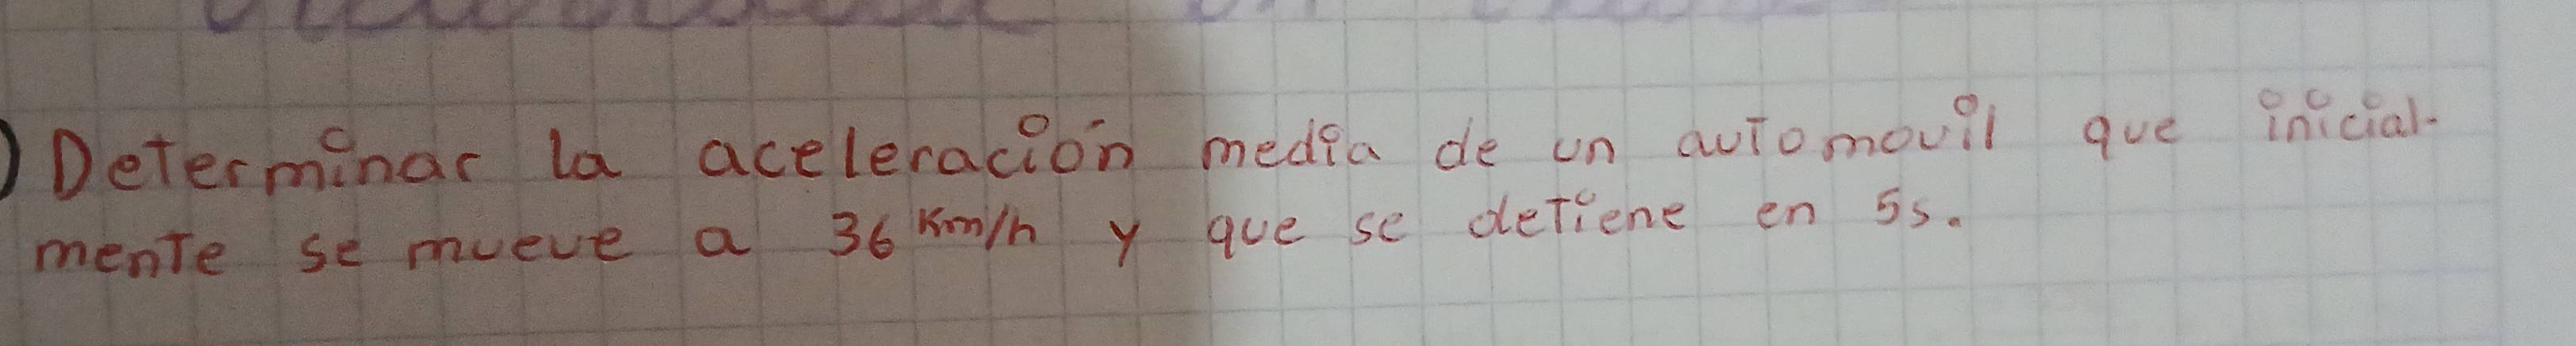 ) Determinar la aceleración media de un automovil que inicial-
mente se mueve a 36 Km/h y que se detiene en 5s.